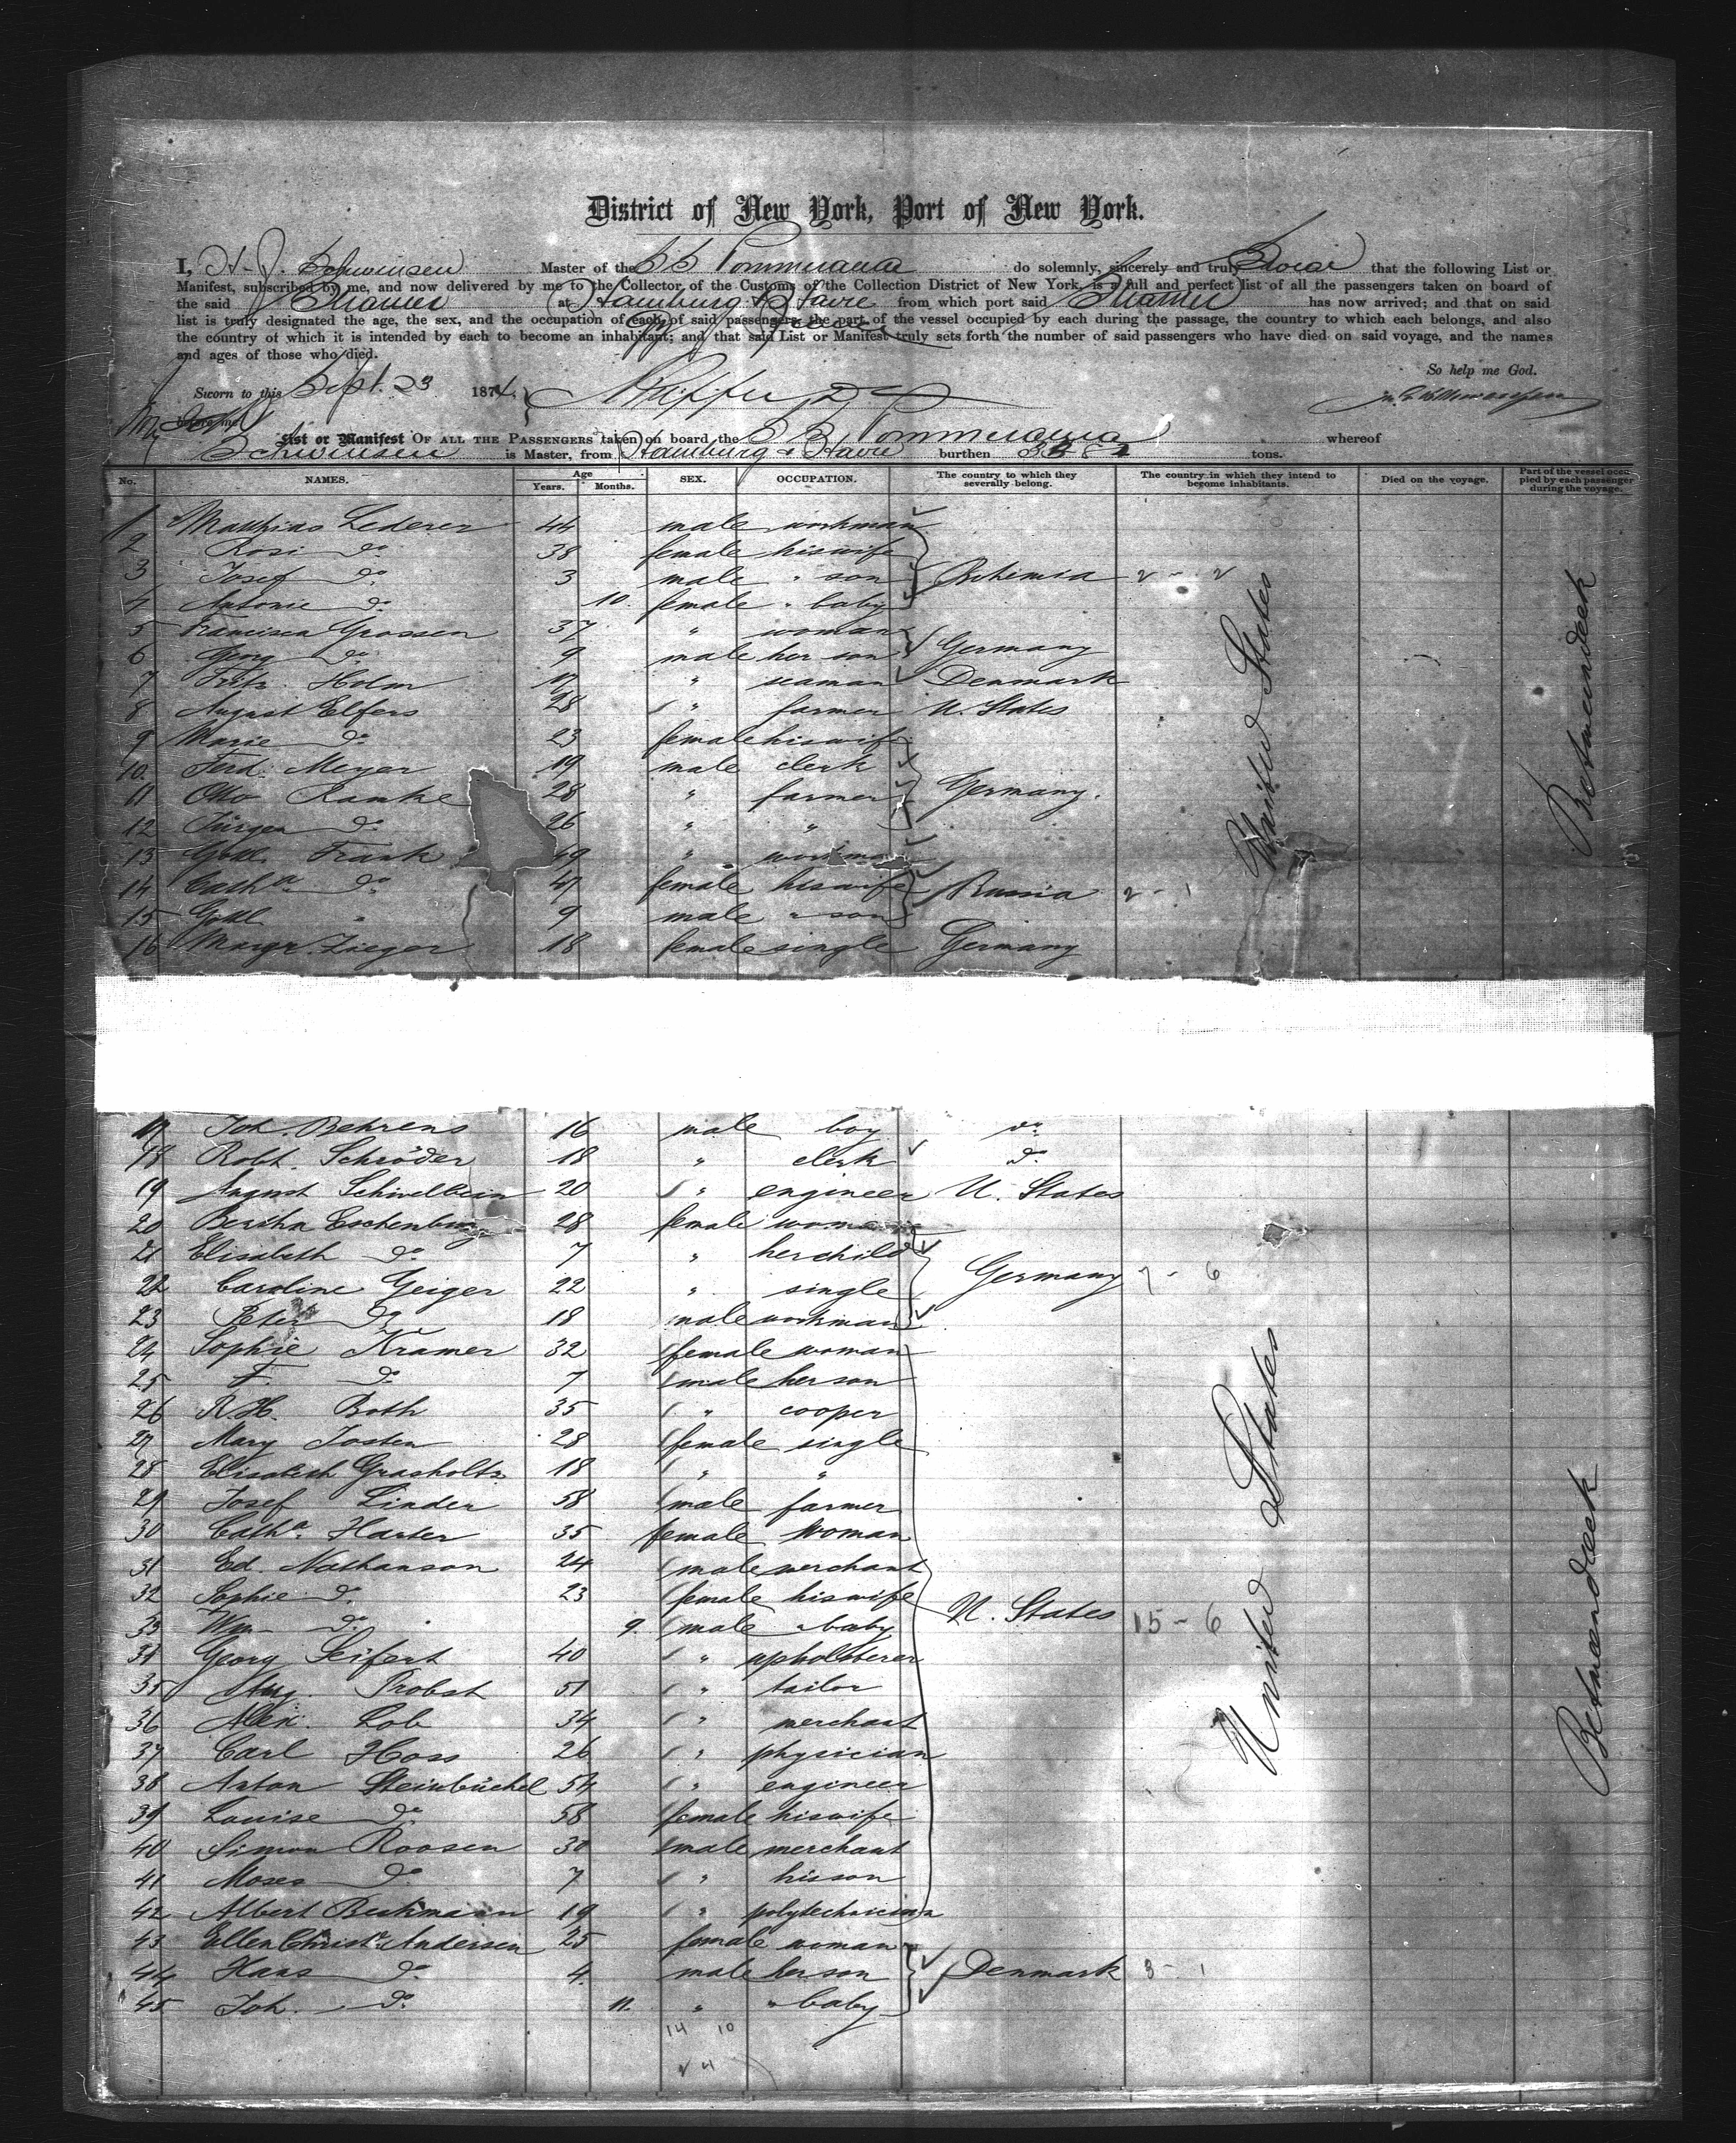 District of New York, Port of New York.
I, H. J. Schwensen Master of the SS Pommerania do solemnly, sincerely and truly Swear that the following List or
Manifest, subscribed by me, and now delivered by me to the Collector of the Customs of the Collection District of New York, is a full and perfect list of all the passengers taken on board of
the said Steamer at Hamburg & Havre from which port said Steamer has now arrived; and that on said
list is truly designated the age, the sex, and the occupation of each of said passengers, the part of the vessel occupied by each during the passage, the country to which each belongs, and also
the country of which it is intended by each to become an inhabitant; and that said List or Manifest truly sets forth the number of said passengers who have died on said voyage, and the names
and ages of those who died.
So help me God.
Sworn to this Sept. 23 1874
before me
List or Manifest OF ALL THE PASSENGERS taken on board the SS Pommerania whereof
Schwensen is Master, from Hamburg & Havre burthen tons.
No. NAMES. Age Years. Months. SEX. OCCUPATION. The country to which they severally belong. The country in which they intend to become inhabitants. Died on the voyage. Part of the vessel occupied by each passenger during the voyage.
1 Mathias Lederer 44 male workman
2 Rosi do 38 female his wife
3 Josef do 3 male " son Bohemia 2 - 2
4 Antonie do 10. female " baby
5 Francisca Grossen 37 " woman
6 Georg do 9 male her son Germany
7 Fritz Holm 17 " seaman Denmark
8 August Elfers 28 " farmer U. States
9 Marie do 23 female his wife
10. Ferd. Meyer 19 male clerk
11 Otto Ramke 28 " farmer Germany.
12 Jürgen do 26 " "
13 Gottl. Frank 49 " workman
14 Catha do 47 female his wife Russia 2 - 1
15 Gottl. " 9 male " son
16 Margr. Zieger 18 female single Germany
United States
Betweendeck
17 Joh. Behrens 16 male boy do
18 Robt. Schröder 18 " clerk do
19 August Schivelbein 20 " engineer U. States
20 Bertha Eschenburg 28 female woman
21 Elisabeth do 7 " her child
22 Caroline Geiger 22 " single Germany 7 - 6
23 Peter do 18 male workman
24 Sophie Kramer 32 female woman
25 F. do 7 male her son
26 R. H. Both 35 " cooper
27 Mary Josten 28 female single
28 Elisabeth Grasholtz 18 " "
29 Josef Linder 58 male farmer
30 Catha Harter 35 female woman
31 Ed. Nathanson 24 male merchant
32 Sophie do 23 female his wife
33 Wm do 9. male " baby U. States 15 - 6
34 Georg Seifert 40 " upholsterer
35 Aug. Probst 51 " tailor
36 Alex. Lob 34 " merchant
37 Carl Hoss 26 " physician
38 Anton Steinbüchel 54 " engineer
39 Louise do 58 female his wife
40 Simon Roosen 30 male merchant
41 Moses do 7 " his son
42 Albert Beckmann 19 " polytechnician
43 Ellen Christe Andersen 25 female woman
44 Hans do 4. male her son Denmark 3 - 1
45 Joh. do 11. " " baby
United States
Betweendeck
14 10